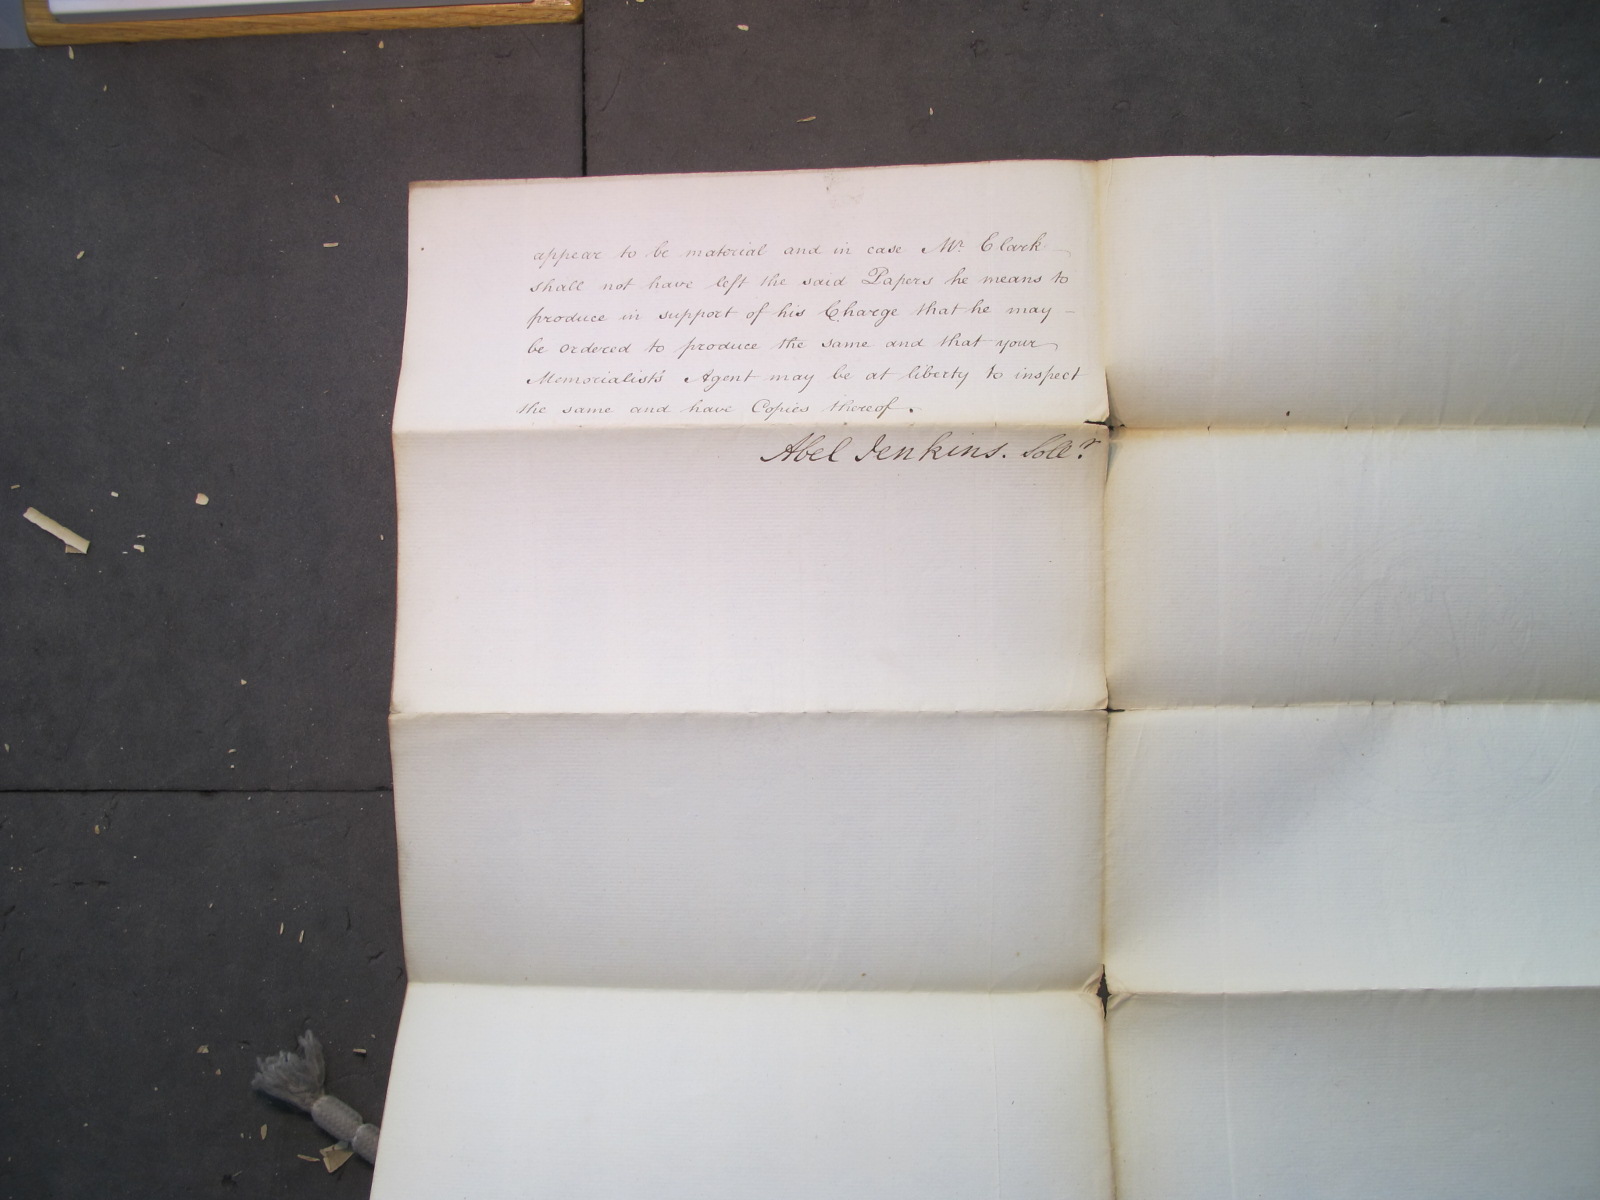 appear to be material and in case Mr. Clark
shall not have left the said Papers he means to
produce in support of his Charge that he may -
be ordered to produce the same and that your
Memorialist's Agent may be at liberty to inspect
the same and have Copies thereof.
Abel Jenkins. Sollr.